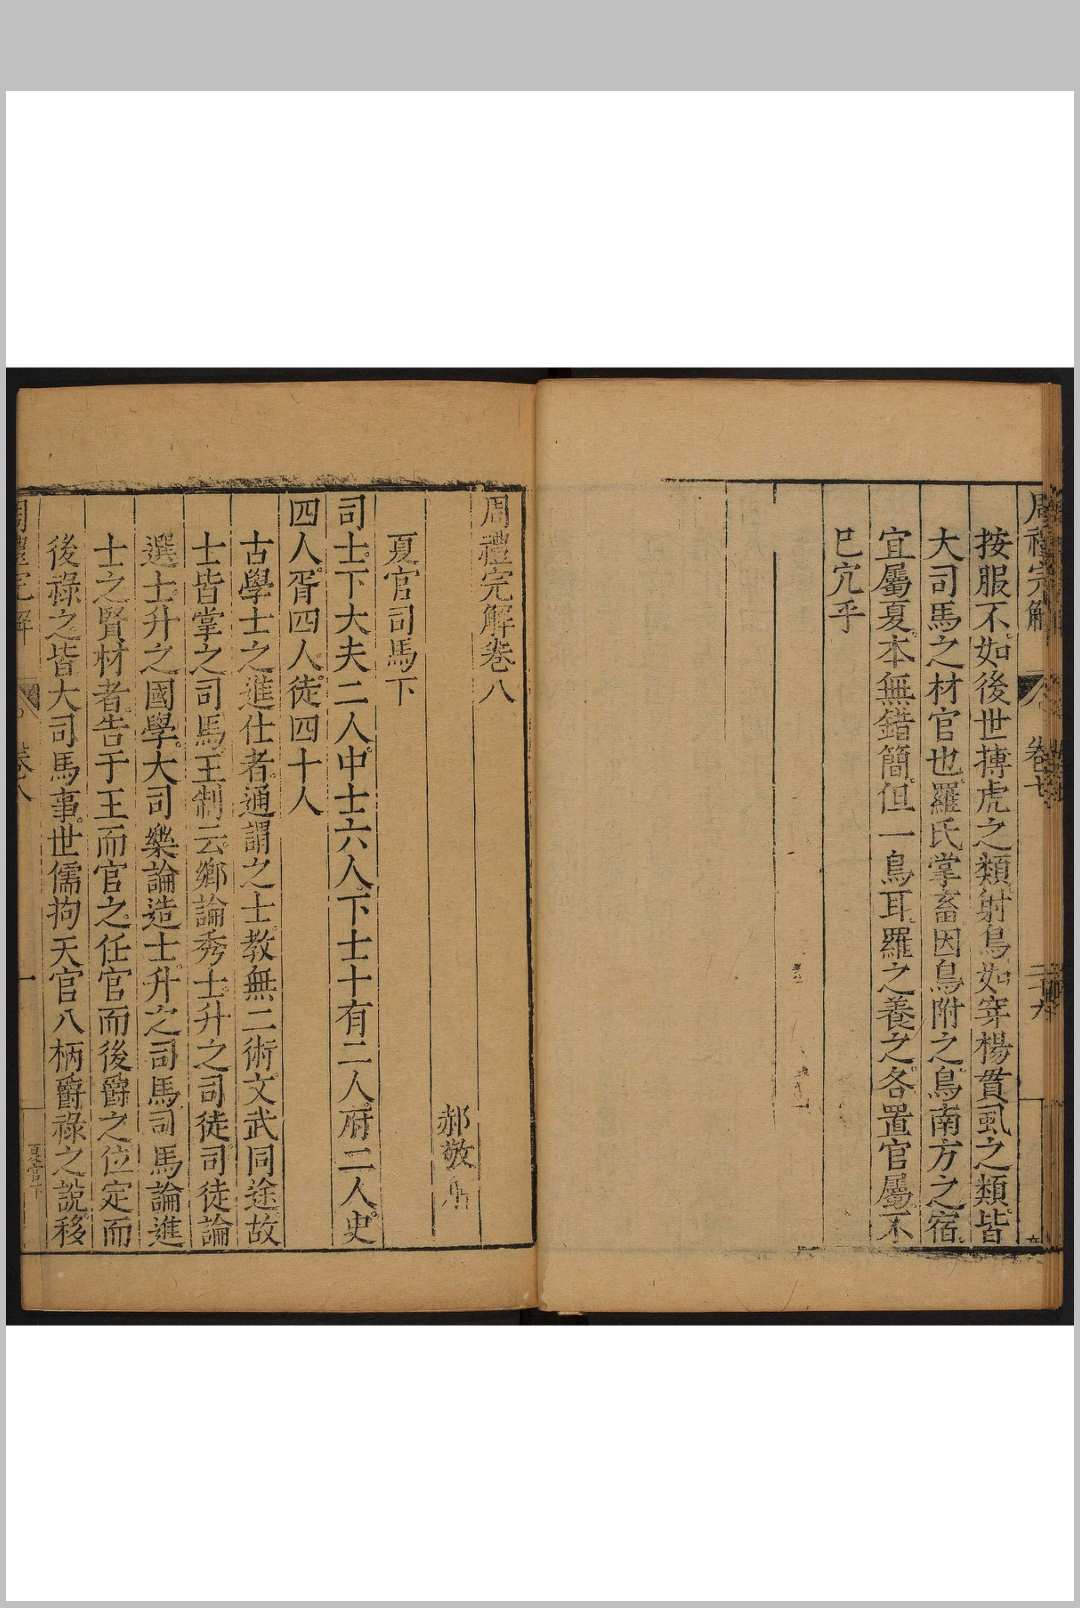 周禮完解
卷七
二十九
按服不如後世搏虎之類射鳥如穿楊貫虱之類皆
大司馬之材官也羅氏掌畜因鳥附之鳥南方之宿
宜屬夏本無錯簡但一鳥耳羅之養之各置官屬不
已冗乎
周禮完解卷八
郝敬
夏官司馬下
司士下大夫二人中士六人下士十有二人府二人史
四人胥四人徒四十人
古學士之進仕者通謂之士教無二術文武同途故
士皆掌之司馬王制云鄉論秀士升之司徒司徒論
選士升之國學大司樂論造士升之司馬司馬論進
士之賢材者告于王而官之任官而後爵之位定而
後祿之皆大司馬事世儒拘天官八柄爵祿之說移
周禮完解
卷八
一
夏官下